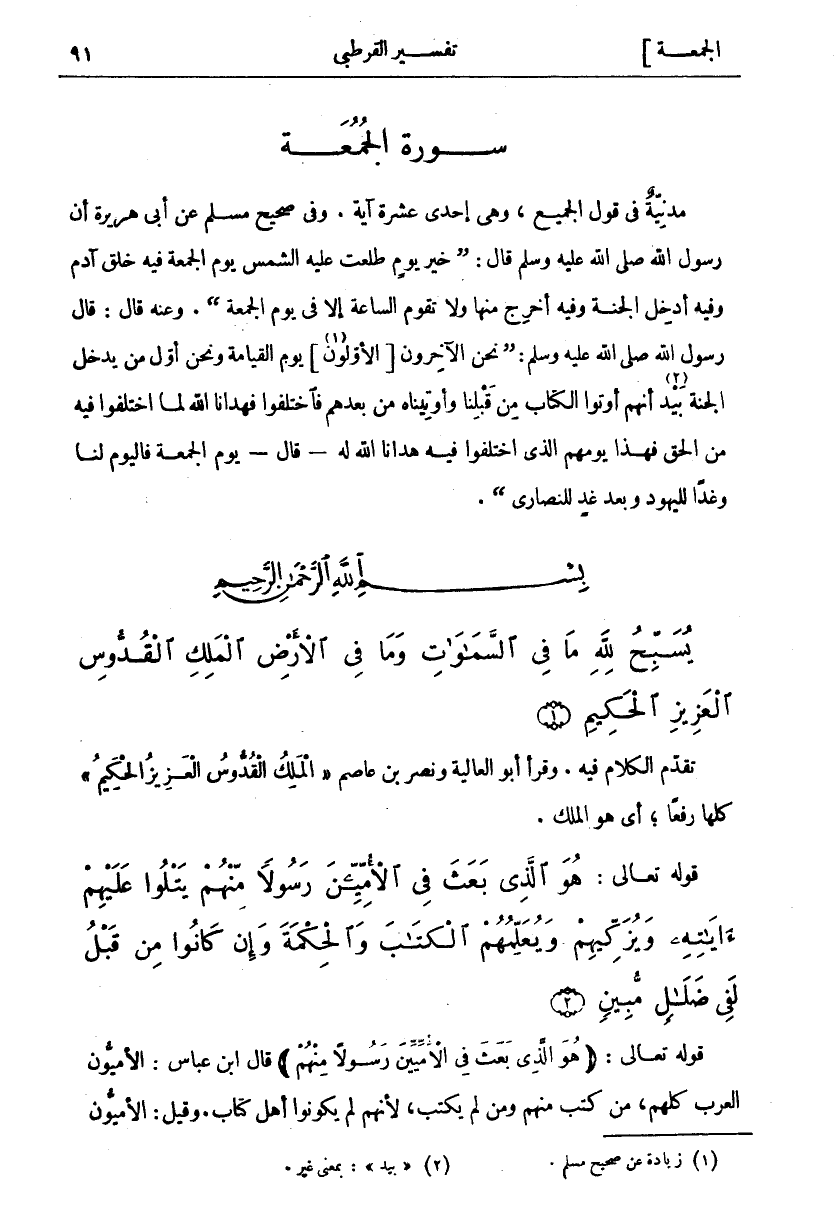 الجمعـــة ]
تفسير القرطبى
٩١
ســـورة الجُمُعَـــة
مدنيّةٌ فى قول الجميع ، وهى إحدى عشرة آية . وفى صحيح مسلم عن أبى هريرة أن
رسول الله صلى الله عليه وسلم قال : ” خير يومٍ طلعت عليه الشمس يوم الجمعة فيه خلق آدم
وفيه أدخِل الجنة وفيه أخرِج منها ولا تقوم الساعة إلا فى يوم الجمعة “ . وعنه قال : قال
رسول الله صلى الله عليه وسلم : ” نحن الآخِرون [ الأوّلون (١) ] يوم القيامة ونحن أوّل من يدخل
الجنة بَيْد (٢) أنهم أوتوا الكتاب مِن قَبْلِنا وأوتِيناه من بعدهم فٱختلفوا فهدانا الله لما اختلفوا فيه
من الحق فهذا يومهم الذى اختلفوا فيه هدانا الله له — قال — يوم الجمعة فاليوم لنا
وغدًا لليهود وبعد غدٍ للنصارى “ .
بِسْـــمِ ٱللَّهِ ٱلرَّحْمَٰنِ ٱلرَّحِيمِ
يُسَبِّحُ لِلَّهِ مَا فِى ٱلسَّمَٰوَٰتِ وَمَا فِى ٱلْأَرْضِ ٱلْمَلِكِ ٱلْقُدُّوسِ
ٱلْعَزِيزِ ٱلْحَكِيمِ ۝١
تقدّم الكلام فيه . وقرأ أبو العالية ونصر بن عاصم « الْمَلِكُ الْقُدُّوسُ الْعَزِيزُ الْحَكِيمُ »
كلها رفعًا ؛ أى هو الملك .
قوله تعالى : هُوَ ٱلَّذِى بَعَثَ فِى ٱلْأُمِّيِّـۧنَ رَسُولًا مِّنْهُمْ يَتْلُوا عَلَيْهِمْ
ءَايَٰتِهِۦ وَيُزَكِّيهِمْ وَيُعَلِّمُهُمُ ٱلْكِتَٰبَ وَٱلْحِكْمَةَ وَإِن كَانُوا مِن قَبْلُ
لَفِى ضَلَٰلٍ مُّبِينٍ ۝٢
قوله تعالى : ﴿ هُوَ الَّذِى بَعَثَ فِى الْأُمِّيِّينَ رَسُولًا مِنْهُمْ ﴾ قال ابن عباس : الأميُّون
العرب كلهم، من كتب منهم ومن لم يكتب، لأنهم لم يكونوا أهل كتاب. وقيل : الأميُّون
(١) زيادة عن صحيح مسلم .
(٢) « بيد » : بمعنى غير .